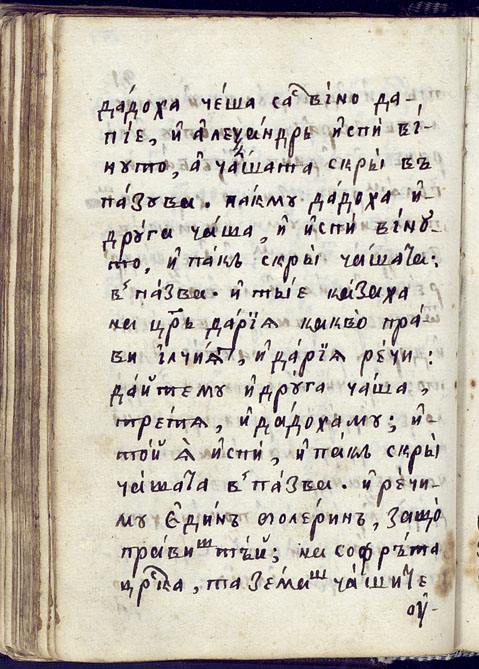 да́доха че́ша са҆ ві́но да-
пі́е, и҆ а҆леѯа́ндрь и҆спѝ ві́-
нуто, а҆ ча́шата скры̀ въ
па́зува. пакму да́доха и҆-
дру́га ча́ша, и҆ и҆спѝ ві́ну
то, и҆ па́къ скры̀ ча́шата:
в па́зва. и҆ ты́е каза́ха
на цр҃ь да́рїꙗ какво̀ пра́-
ви і҆лчи́ѧт, и҆ да́рїѧ ре́чи:
да́йтему и҆ дру́га ча́ша,
тре́тѧ, и҆ да́дохаму; и҆-
то́й ѧ҆̀ и҆спѝ, и҆ па́къ скры̀
ча́шата в па́зва. и҆ ре́чи-
му є҆ди́нъ ѳолери́нъ, защо̀
пра́виш ты́й; на софрь́та
цр҃ка, та зе́маш ча́шите
оу҆-